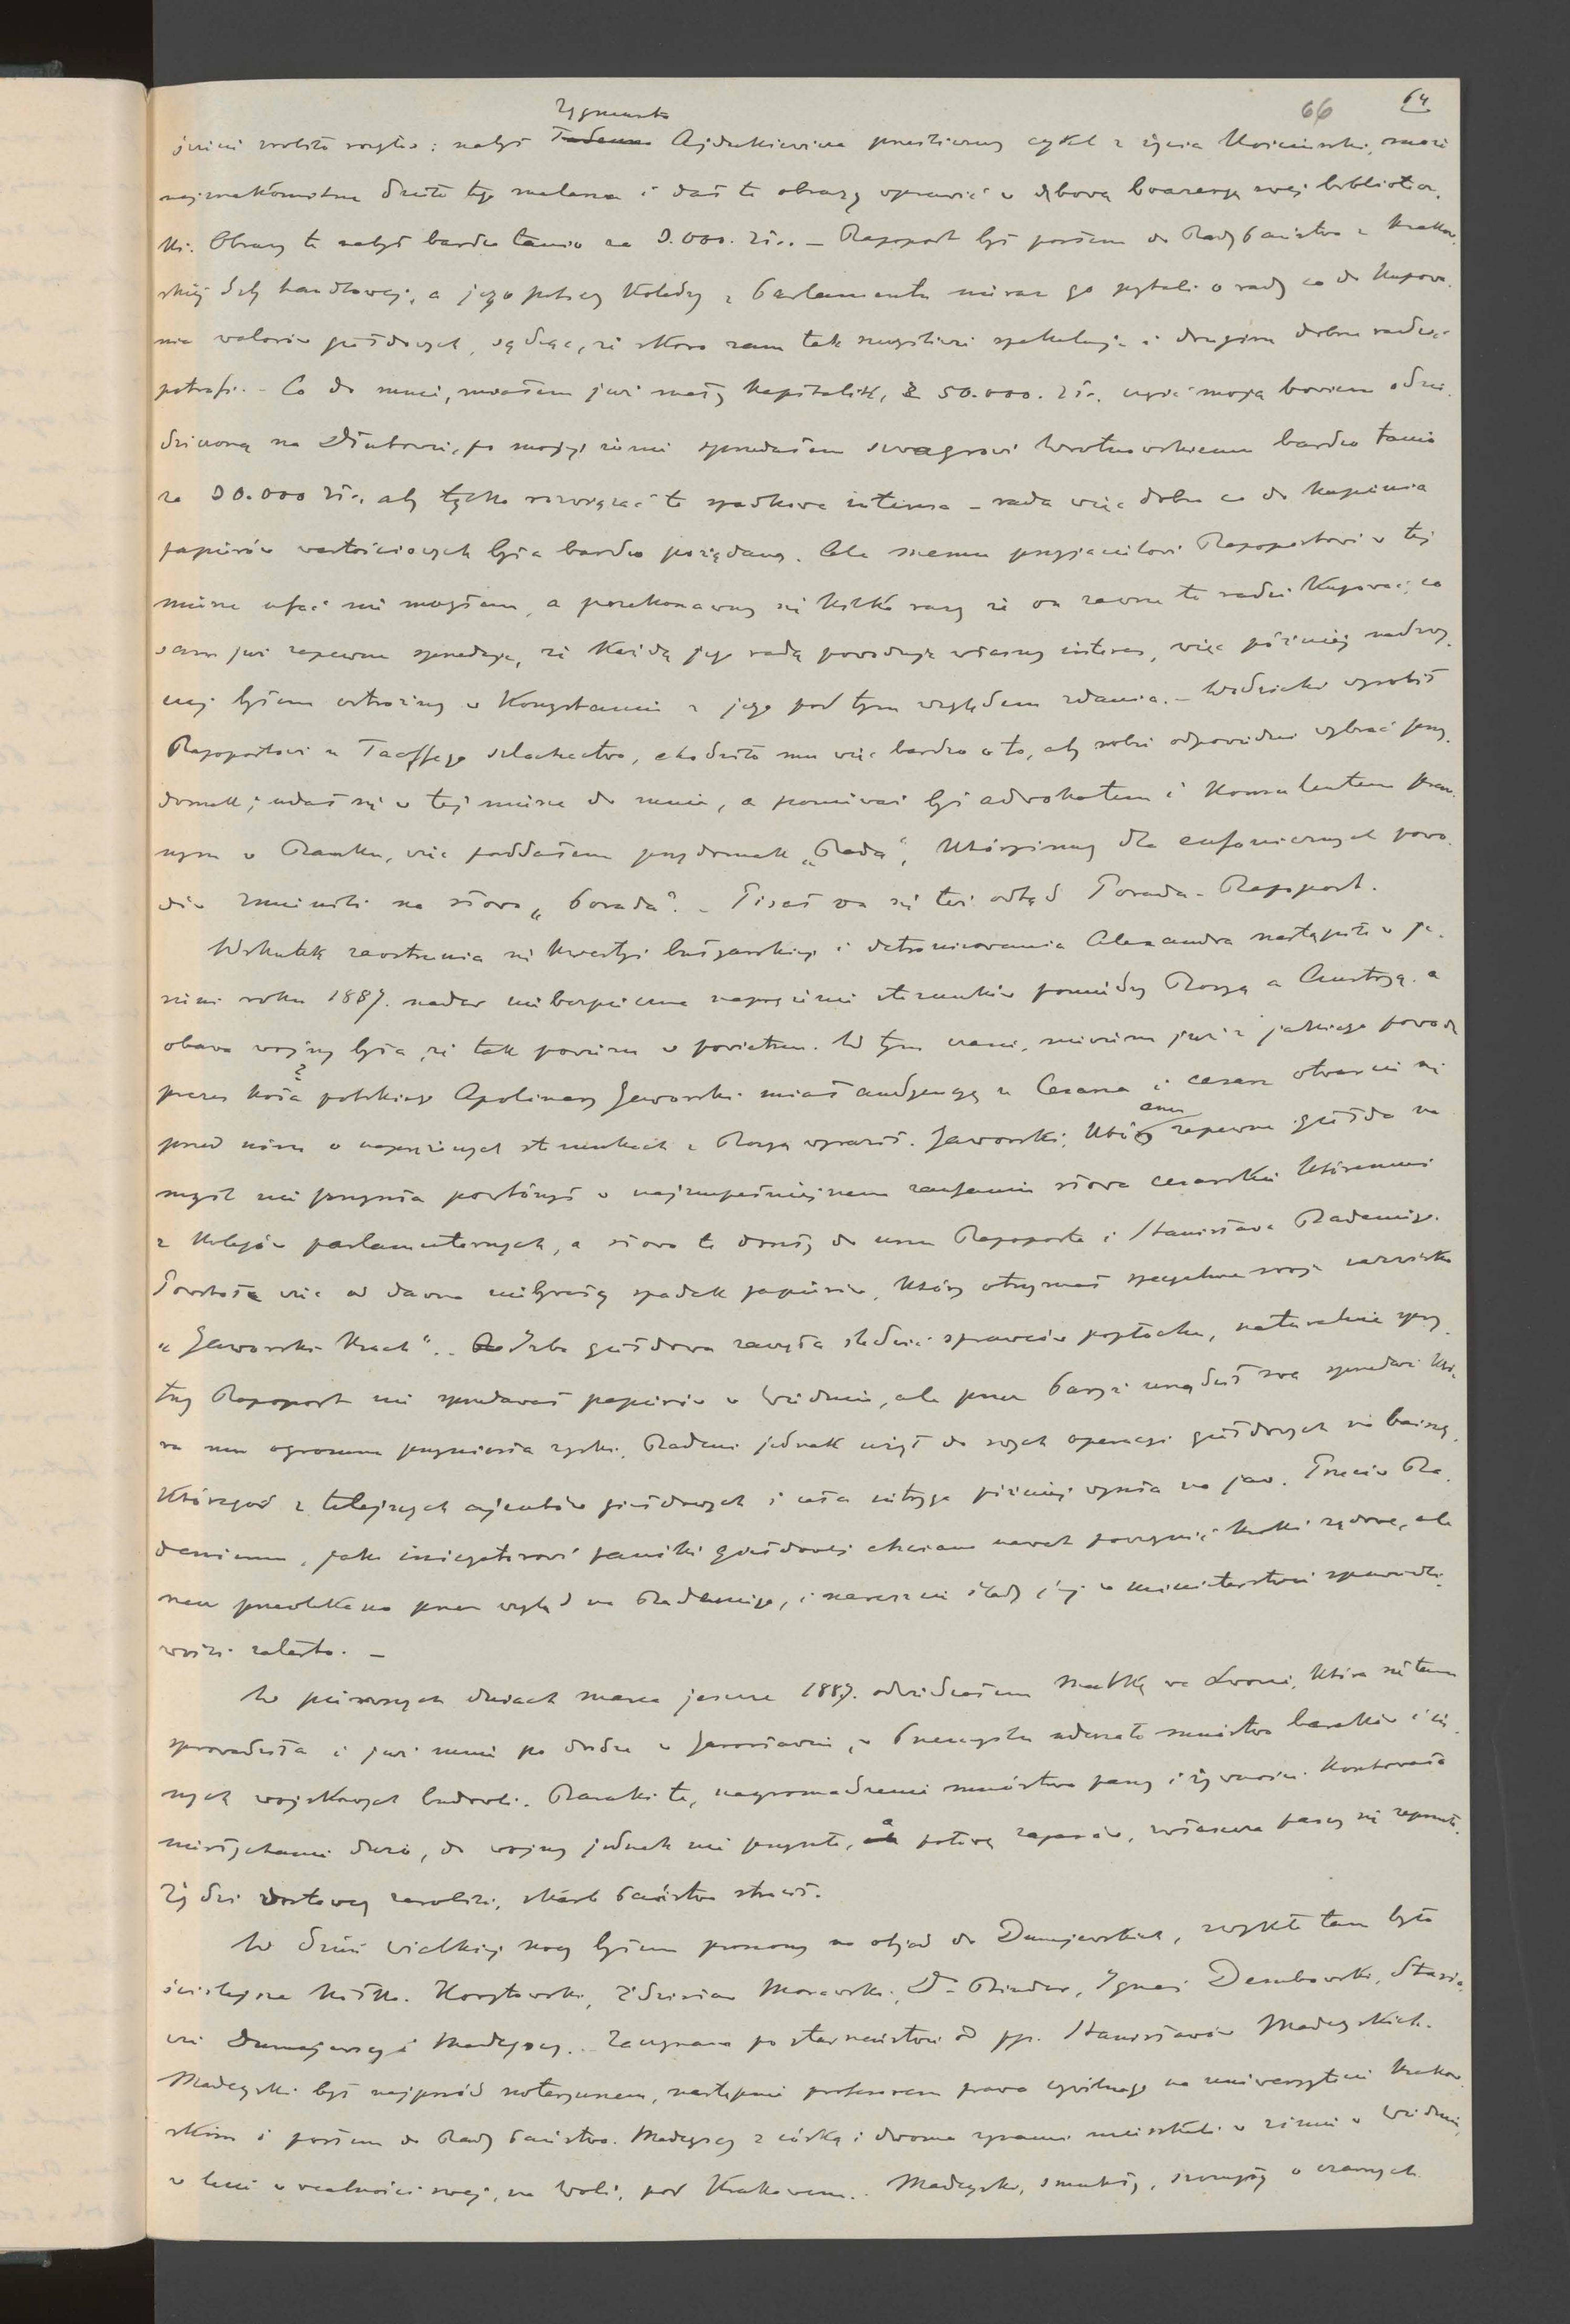 66 64
Zygmunta
jeszcze zrobiło ryzyko: nabył Tadeusza Ajdukiewicza prześliczny cykl z życia Kościuszki, może
najznakomitsze dzieło tego malarza i dał te obrazy oprawić w dębową boazeryę swej bibliote-
ki. Obrazy te nabył bardzo tanio za 9.000. zł.. – Rapoport był posłem do Rady Państwa z krakow-
skiej Izby handlowej, a jego polscy koledzy z Parlamentu nieraz go pytali o radę co do kupowa-
nia walorów giełdowych, sądząc, że skoro sam tak szczęśliwie spekuluje i drugim dobrze radzić
potrafi. – Co do mnie, miałem już mały kapitalik, z 50.000. zł., część moją bowiem odzie-
dziczoną na Dłutowie, po mojej żonie sprzedałem szwagrowi Wrotnowskiemu bardzo tanio
za 30.000 zł., aby tylko rozwiązać te spadkowe interesa – rada więc dobra co do kupienia
papierów wartościowych była bardzo pożądaną. Ale memu przyjacielowi Rapoportowi w tej
mierze ufać nie mogłem, a przekonawszy się kilka razy że on zawsze to radzi kupować, co
sam już zapewne sprzedaje, że każdą jego radą powoduje własny interes, więc później nadzwy-
czaj byłem ostrożny w korzystaniu z jego pod tym względem zdania. – Wodzicki wyrobił
Rapoportowi u Taaffego szlachectwo, chodziło mu więc bardzo o to, aby sobie odpowiedni wybrać przy-
domek; udał się w tej mierze do mnie, a ponieważ był adwokatem i konsulentem praw-
nym w Banku, więc poddałem przydomek „Rada“, któryśmy dla eufonicznych powo-
dów zmienili na słowo „Porada“. – Pisał on się też odtąd Porada-Rapoport.
Wskutek zaostrzenia się kwestyi bułgarskiej i detronizowania Alexandra nastąpiło w je-
sieni roku 1887. nader niebezpieczne naprężenie stosunków pomiędzy Rosyą a Austryą. a
obawa wojny była, że tak powiem w powietrzu. W tym czasie, nie wiem już z jakiego powodu
prezes koła polskiego Apolinary Jaworski miał audyencyę u Cesarza i cesarz otwarcie się
przed nim o naprężonych stosunkach z Rosyą wyraził. Jaworski, któremu zapewne giełda na
myśl nie przyszła powtórzył w najzupełniejszem zaufaniu słowa cesarskie któremuś
z kolegów parlamentarnych, a słowa te doszły do uszu Rapoporta i Stanisława Badeniego.
Powstał więc od dawna niebywały spadek papierów, który otrzymał specyalne swoje nazwisko
„Jaworski Krach“. . Izba giełdowa zaczęła śledzić sprawców popłochu, naturalnie spry-
tny Rapoport nie sprzedawał papierów w Wiedniu, ale przez Paryż urządził swą sprzedaż któ-
ra mu ogromne przyniosła zyski. Badeni jednak użył do swych operacyi giełdowych na baissę,
któregoś z tutejszych ajentów giełdowych i cała intryga później wyszła na jaw. Przeciw Ba-
deniemu, jako inicyatorowi paniki giełdowej chciano nawet poczynić kroki sądowe, ale
rzecz przewlekano przez wzgląd na Badeniego, i nareszcie ślady jej w ministerstwie sprawiedli-
wości zatarto. –
W pierwszych dniach marca jeszcze 1887. odwiedzałem Matkę we Lwowie, która się tam
sprowadziła i już mnie po drodze w Jarosławiu, w Przemyślu uderzało mnóstwo baraków i in-
nych wojskowych budowli. Baraki te, nagromadzenie mnóstwa paszy i żywności kosztowało
niesłychanie dużo, do wojny jednak nie przyszło, a połowę zapasów, zwłaszcza paszy się zepsuło.
Żydzi dostawcy zarobili, skarb Państwa stracił.
W dzień Wielkiej nocy byłem proszony na objad do Dunajewskich, zwykłe tam było
ściślejsze kółko. Korytowski, Zdzisław Morawski, Dr. Binder, Ignacy Dembowski, Stasio-
wie Dunajewscy i Madeyscy. . Zaczynam po starszeństwie od pp. Stanisławów Madeyskich.
Madeyski był najprzód notaryuszem, następnie profesorem prawa cywilnego na uniwersytecie krakow-
skim i posłem do Rady Państwa. Madeyscy z córką i dwoma synami mieszkali w zimie w Wiedniu,
w lecie w realności swej, na Woli, pod Krakowem. . Madeyski, smukły, szczupły o czarnych